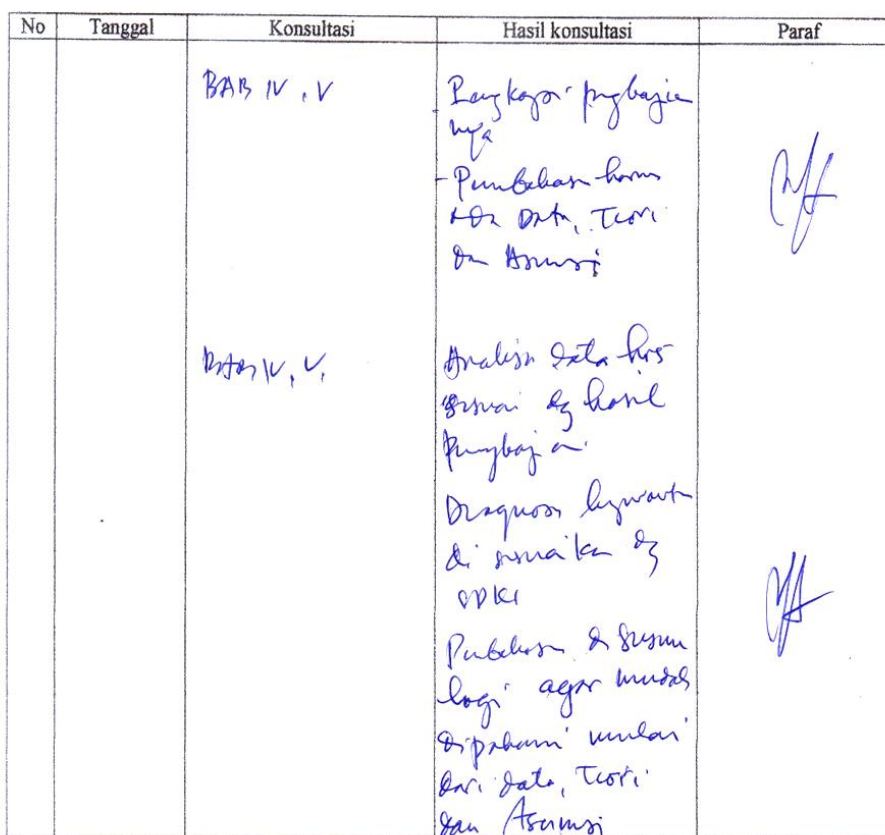 No Tanggal Konsultasi Hasil konsultasi Paraf
BAB IV, V
- Lengkapi pengkajian
nya
- Pembahasan harus
ada Data, Teori
dan Asumsi
BAB IV, V.
Analisa data hrs
sesuai dg hasil
pengkajian.
Diagnosa keperawatan
di sesuaikan dg
SDKI
Pembahasan di susun
lagi agar mudah
dipahami mulai
dari data, Teori
dan Asumsi